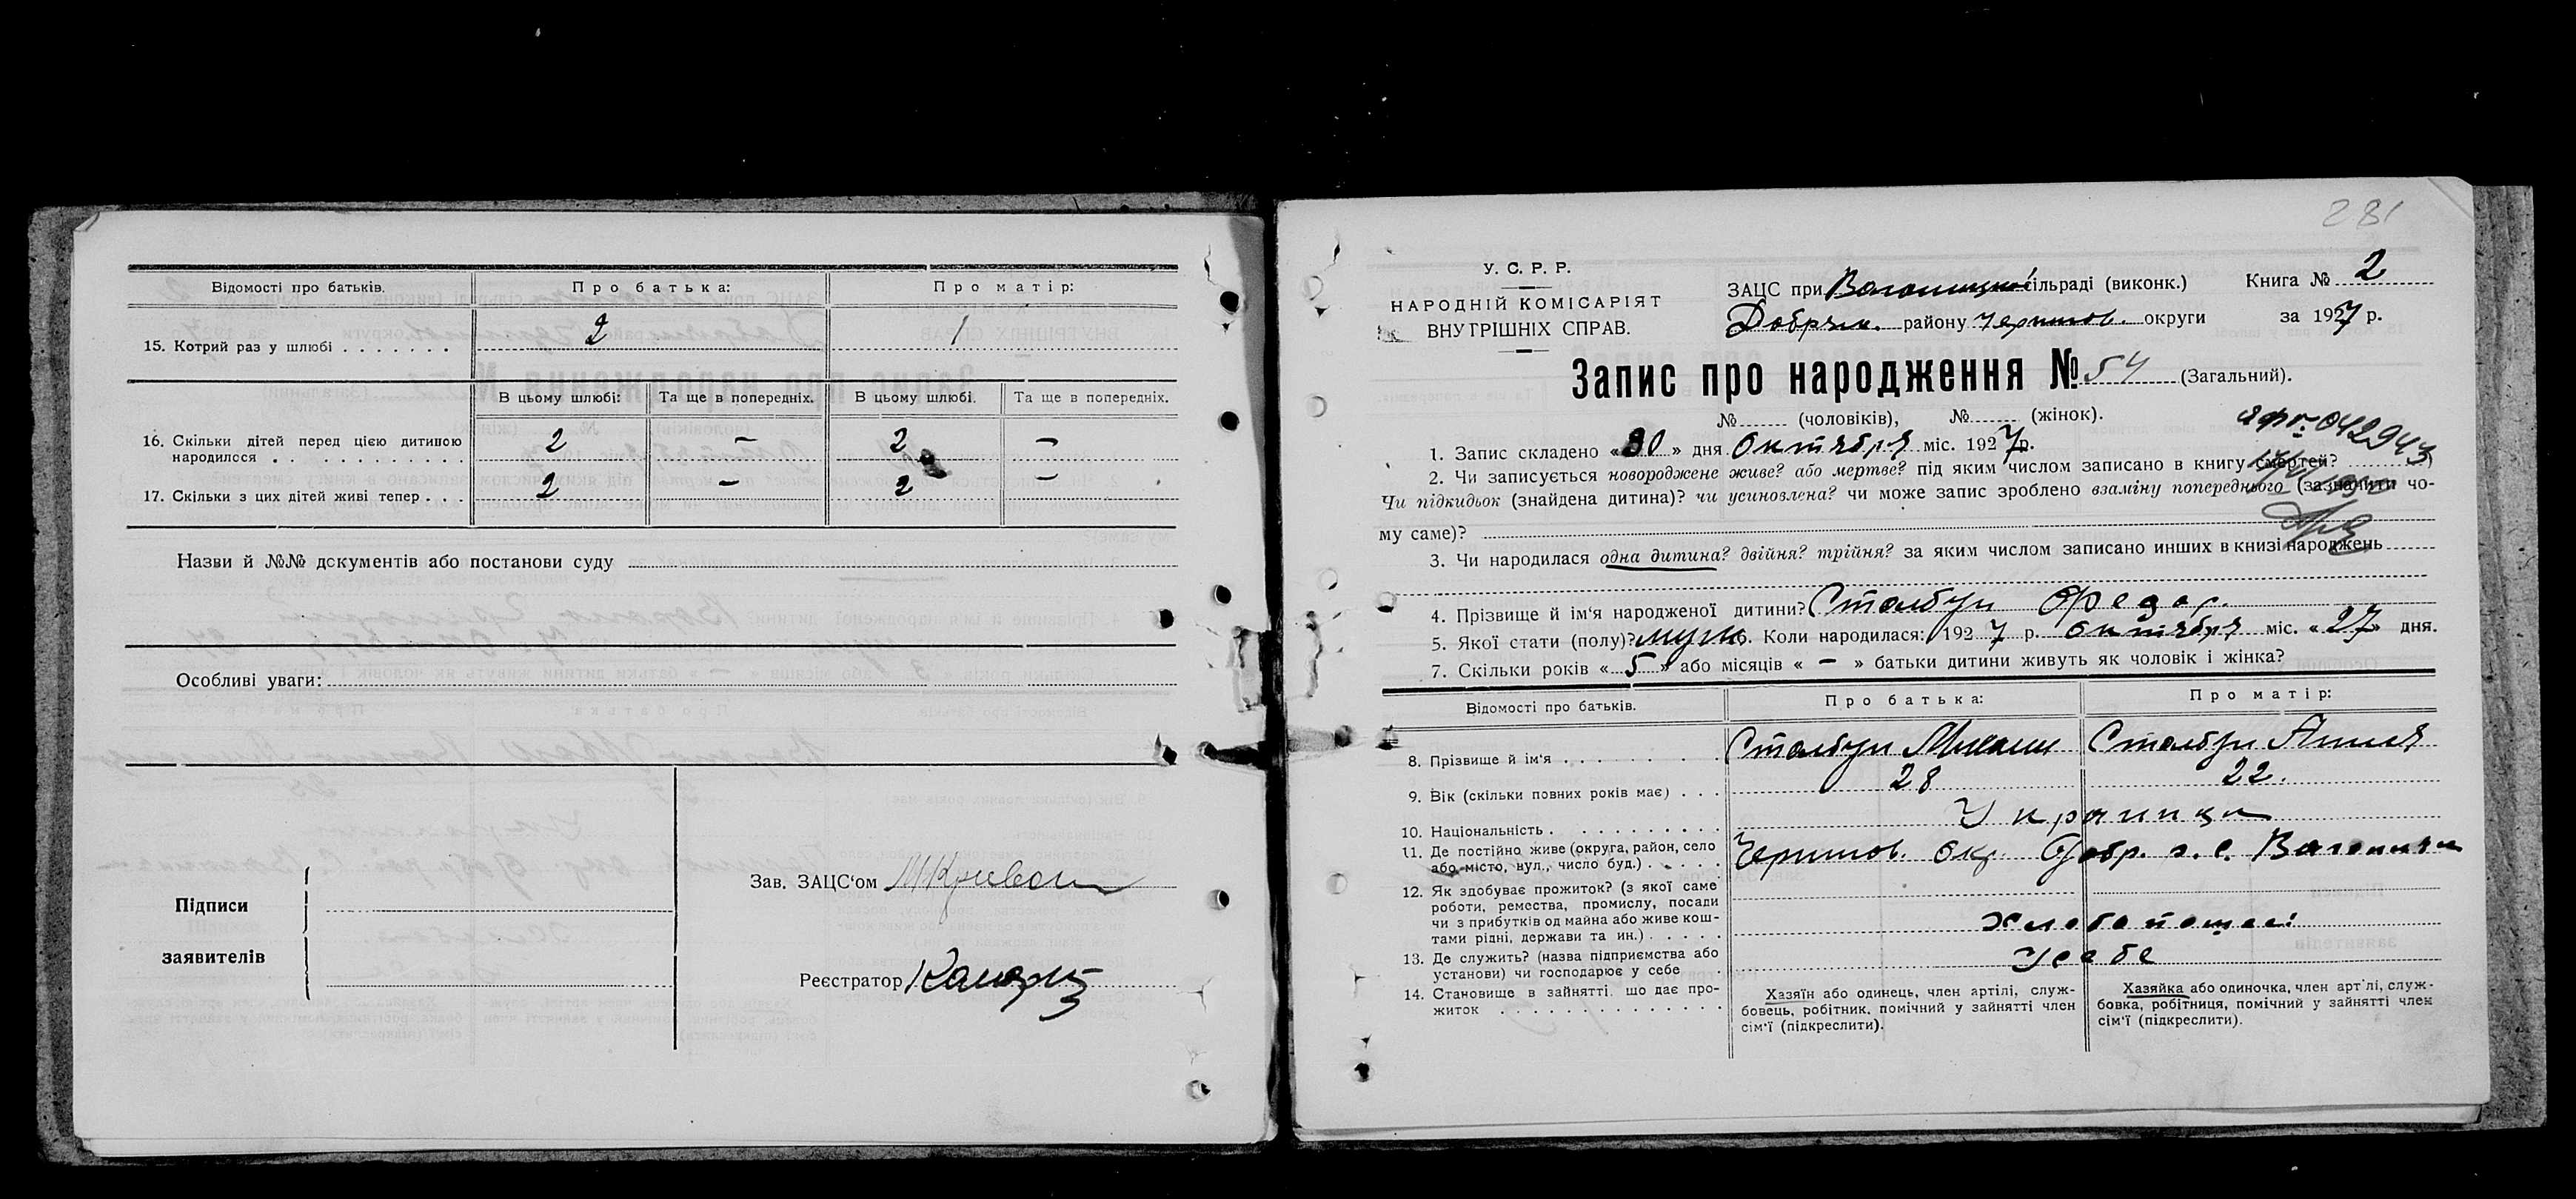 Відомості про батьків.
Про батька:
Про матір:
15. Котрий раз у шлюбі . . . . . . .
2
1
В цьому шлюбі:
Та ще в попередніх.
В цьому шлюбі.
Та ще в попередніх.
16. Скільки дітей перед цією дитиною
народилося . . . . . . . . . . .
2
—
2
—
17. Скільки з цих дітей живі тепер . . .
2
—
2
—
Назви й №№ документів або постанови суду
Особливі уваги:
Підписи
заявителів
Зав. ЗАЦС'ом
Реєстратор
281
У. С. Р. Р.
НАРОДНІЙ КОМІСАРІЯТ
ВНУТРІШНІХ СПРАВ.
ЗАЦС при сільраді (виконк.)
Книга № 2
Добрян. району Чернигов. округи
за 1927 р.
Запис про народження № 54 (Загальний).
№ (чоловіків), № (жінок).
042943
1. Запис складено «30» дня Октября міс. 1927 р.
2. Чи записується новороджене живе? або мертве? під яким числом записано в книгу смертей?
Чи підкидьок (знайдена дитина)? чи усиновлена? чи може запис зроблено взаміну попереднього (зазначити чо-
му саме)?
3. Чи народилася одна дитина? двійня? трійня? за яким числом записано инших в книзі народжень
4. Прізвище й ім'я народженої дитини? Столбун Федор.
5. Якої стати (полу)? муж. 6. Коли народилася: 1927 р. октября міс. «27» дня.
7. Скільки років «5» або місяців «—» батьки дитини живуть як чоловік і жінка?
Відомості про батьків.
Про батька:
Про матір:
8. Прізвище й ім'я . . . . . . . .
Столбун Михаил
Столбун Анна
9. Вік (скільки повних років має) . . .
28
22.
10. Національність . . . . . . . . . .
Украинци
11. Де постійно живе (округа, район, село
або місто, вул., число буд.) . . . . .
Чернигов. окр. Добр. р. с.
12. Як здобуває прожиток? (з якої саме
роботи, ремества, промислу, посади
чи з прибутків од майна або живе кош-
тами рідні, держави та ин.) . . . . .
Хлебопашес
13. Де служить? (назва підприємства або
установи) чи господарює у себе .
У себе
14. Становище в зайнятті, що дає про-
житок . . . . . . . . . . . . . .
Хазяїн або одинець, член артілі, служ-
бовець, робітник, помічний у зайнятті член
сім'ї (підкреслити).
Хазяйка або одиночка, член артілі, служ-
бовка, робітниця, помічний у зайнятті член
сім'ї (підкреслити).